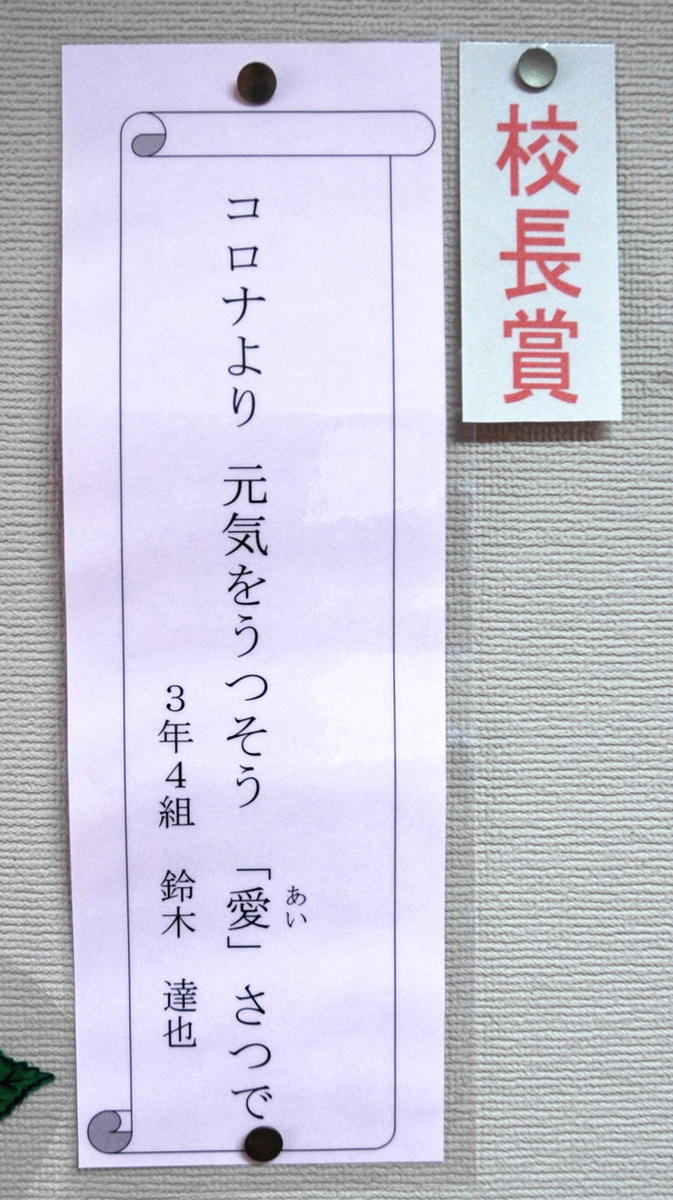 校長賞
コロナより 元気をうつそう 「愛」さつで
あい
3年4組 鈴木 達也